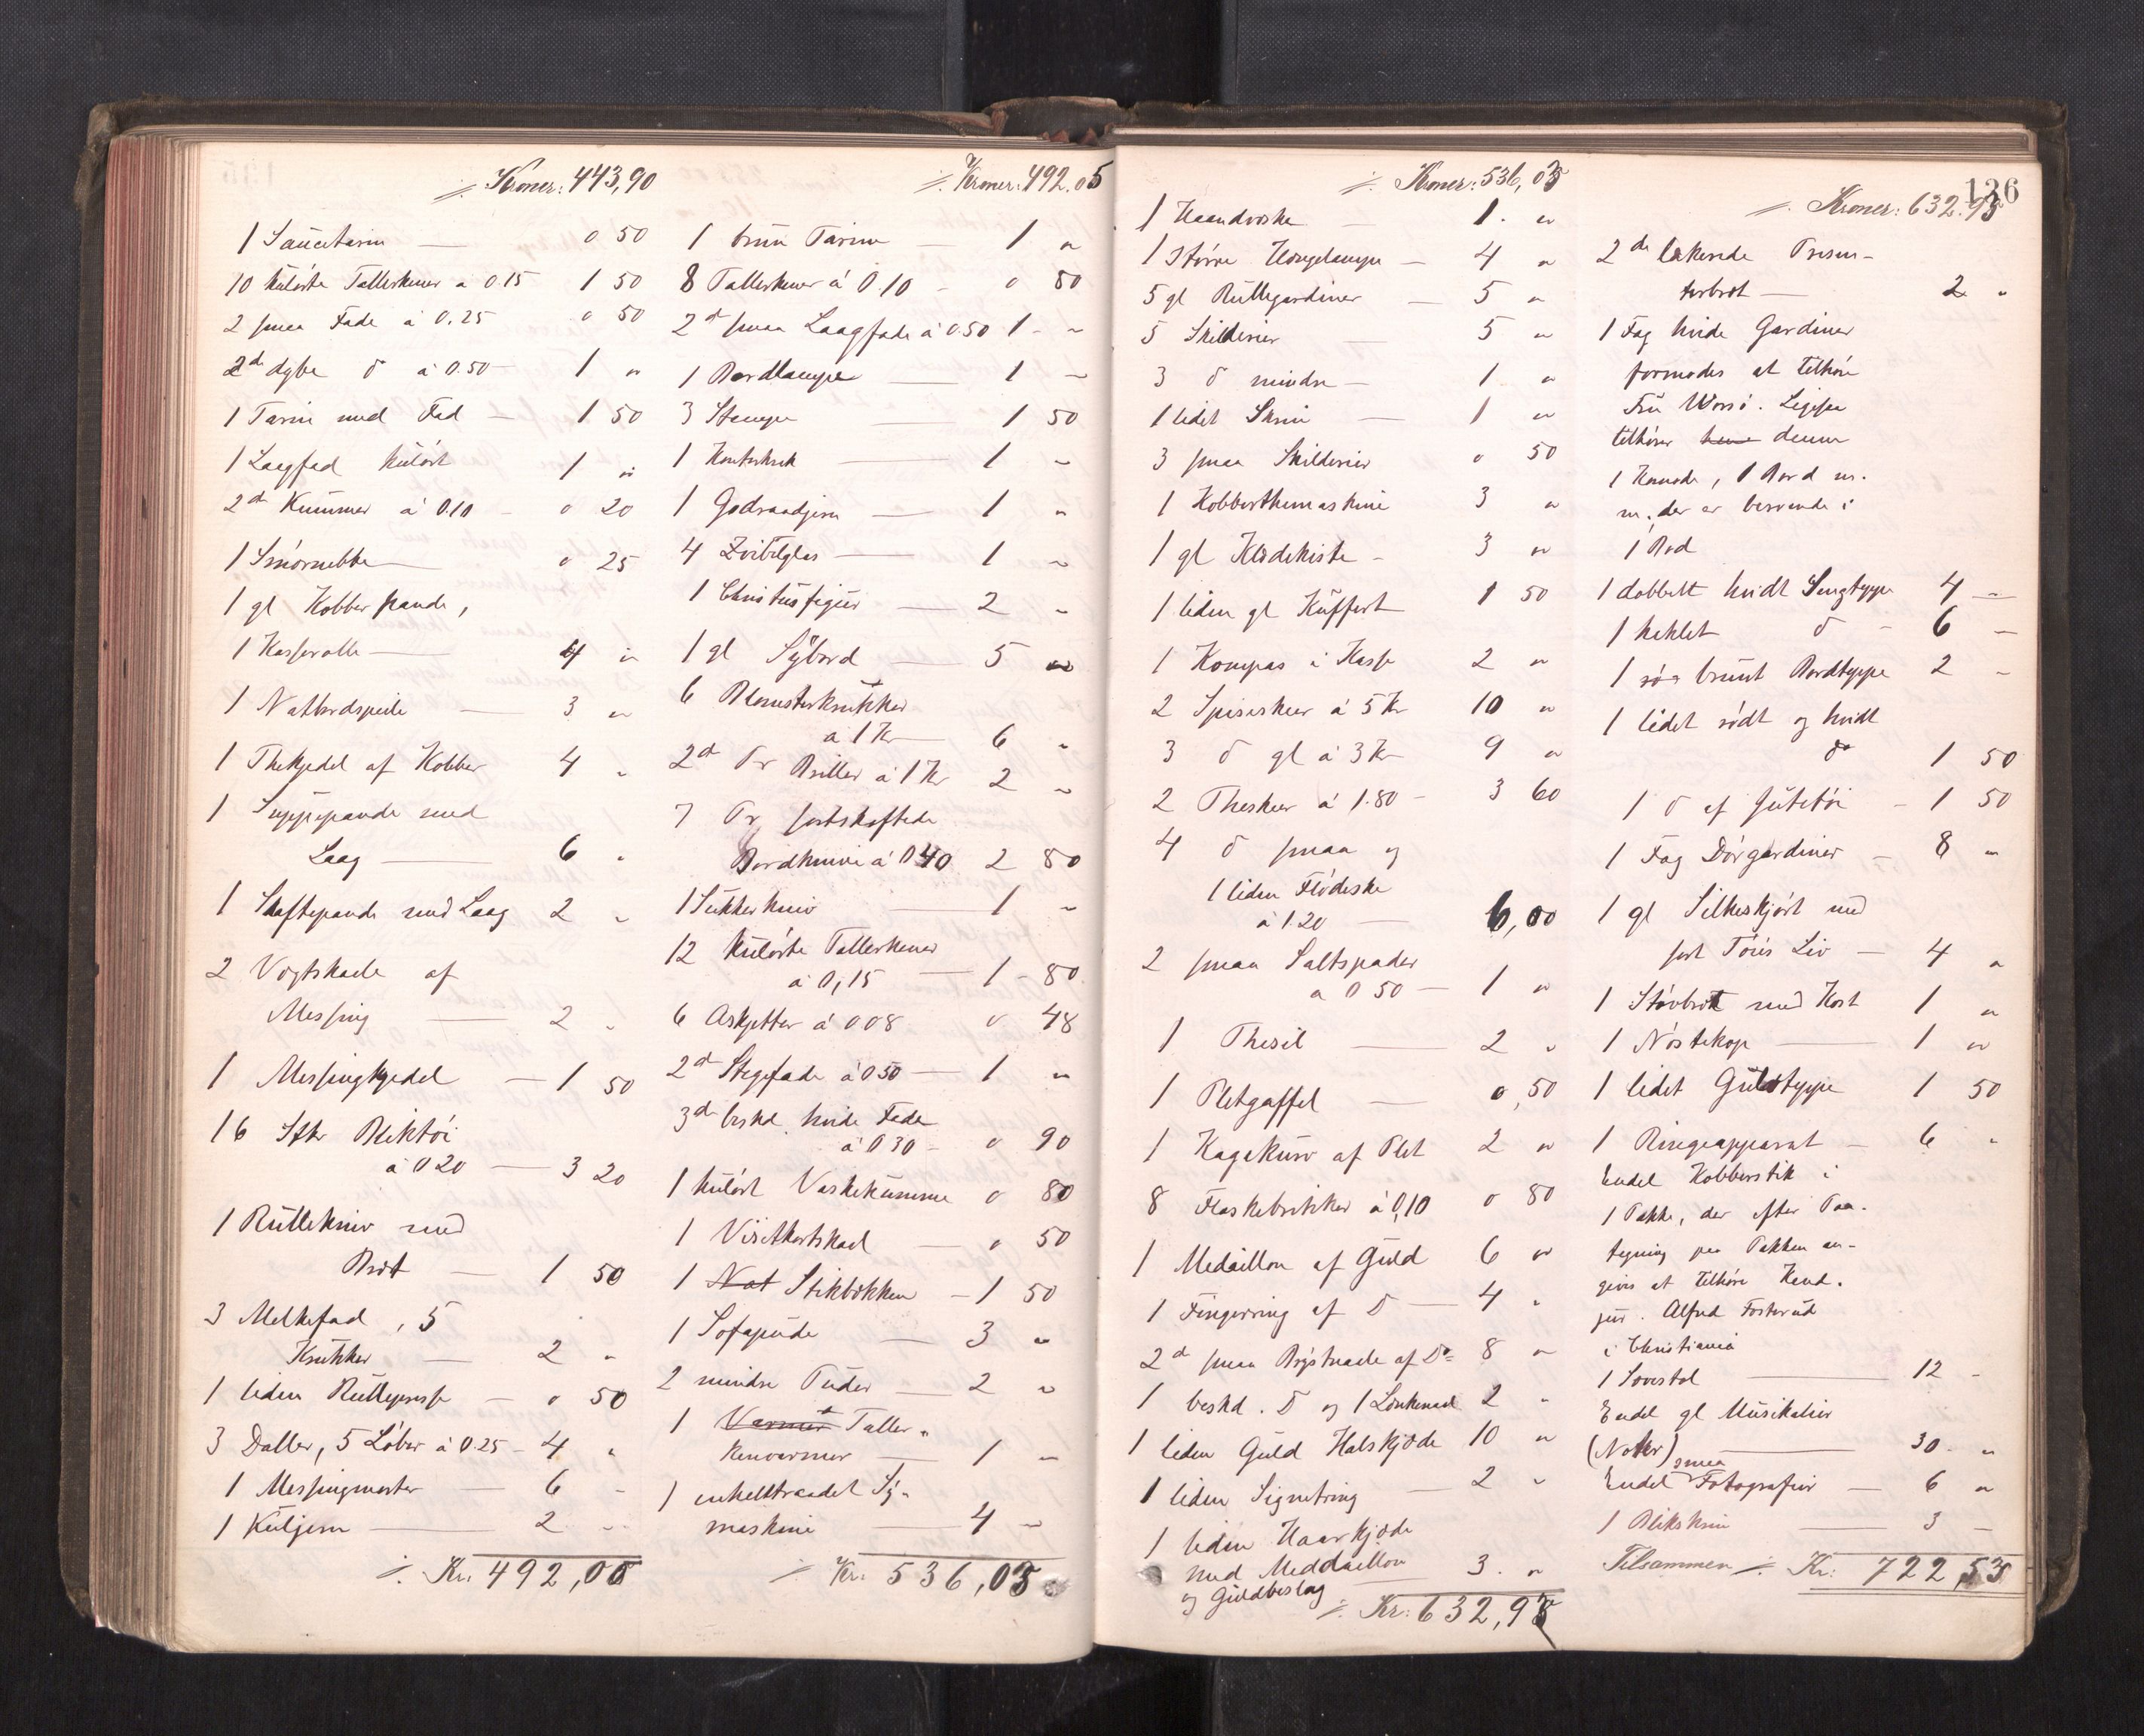 ./. Kroner: 443,90
1 Saucetarin — 0 50
10 kulørte Tallerkener a 0.15 1 50
2 smaa Fade á 0.25 0 50
2de dybe do á 0.50 — 1 "
1 Tarin med Fad — 1 50
1 Laagfad kulørt 1 "
2de Kummer á 0.10 - 0 20
1 Smørnebbe — 0 25
1 gl Kobberpande,
1 Kasserolle — 4 "
1 Natbordspeile — 3 "
1 Thekjedel af Kobber 4 "
1 Suppepande med
Laag — 6 "
1 Skaftepande med Laag 2 "
2 Vegtskaale af
Messing — 2 "
1 Messingkjedel — 1 50
16 Stkr Bliktøi
á 0 20 — 3 20
1 Rullekniv med
Bræt — 1 50
3 Melkefad, 5
Krukker — 2 "
1 liden Rullepresse — 0 50
3 Daller, 5 Løber á 0.25 - 4 "
1 Messingmorter — 6 -
1 Kuljern — 2 "
./. Kr. 492,05
./. Kroner: 492.05
1 brun Tarin — 1 "
8 Tallerkener á 0.10 - 0 80
2de smaa Laagfade á 0.50 1 - "
1 Bordlampe — 1 -
3 Stampe — 1 50
1 — 1 -
1 Godraadjern — 1 "
4 Zvibelglas — 1 -
1 Christusfigur — 2 -
1 gl Sybord — 5 "
6 Blomsterkrukker
a 1 Kr — 6 "
2de Pr Briller á 1 Kr 2 "
7 Pr sortskaftede
Bordknive á 0 40 2 80
1 Sukkerkniv — 1 -
12 kulørte Tallerkener
á 0,15 — 1 - 80
6 Askjetter á 0 08 0 48
2de Stegefade á 0 50 — 1 "
3de beskd. hvide Fade
á 0 30 - 0 90
1 kulørt Vaskekumme 0 80
1 Visitkortskaal — 0 50
1 Nat Stikbækken — 1 50
1 Sofapude — 3 "
2 mindre Puder — 2 "
1 Varmer Taller-
kenvarmer — 1 -
1 enkelttraadet Sy-
maskine — 4 -
./. Kr. 536,03
./. Kroner: 536,03
1 Haandvæske — 1. "
1 større Hængelampe — 4 "
5 gl Rullegardiner — 5 "
5 Skilderier — 5 "
3 do mindre — 1 "
1 lidet Skrin — 1 "
3 smaa Skilderier 0 50
1 Kobberthemaskine 3 "
1 gl Klædekiste - 3 "
1 liden gl Kuffert 1 50
1 Kompas i Kasse 2 "
2 Spiseskeer á 5 Kr 10 "
3 do gl á 3 Kr 9 "
2 Theskeer á 1.80 — 3 60
4 do smaa og
1 liden Flødeske
á 1.20 — 6,00
2 smaa Saltspader
a 0 50 — 1 "
1 Thesil — 2 "
1 Pletgaffel — 0,50
1 Kagekurv af Plet 2 "
8 Flaskebrikker á 0,10 0 80
1 Medaillon af Guld 6 "
1 Fingerring af Do — 4 "
2de smaa Brystnaale af Do = 8 "
1 beskd. Do og 1 Lænkenaal 2 "
1 liden Guld Halskjæde 10 "
1 liden Signetring — 2 "
1 liden Haarkjæde
med Meddaillon
og Guldbeslag — 3. "
./. Kr: 632,93
136
./. Kroner: 632.93
2de lakerede Presen-
terbræt — 2 "
1 Fag hvide Gardiner
formodes at tilhøre
Fru Worsø. Ligesaa
tilhører denne
1 Komode, 1 Bord m.
m. der er beroende i
1 Bod
1 dobbelt hvidt Sengtæppe 4 -
1 heklet do - 6 -
1 brunt Bordtæppe 2 -
1 lidet rødt og hvidt
do 1 50
1 do af Jutetøi — 1 50
1 Fag Dørgardiner — 8 "
1 gl Silkeskjørt med
sort Tøis Liv — 4 "
1 Støvbræt med Kost 1 "
1 Nøstekop — 1 "
1 lidet Gulvtæppe 1 50
1 Ringeapparat — 6 "
Endel Kobberstik i
1 Pakke, der efter Paa-
tegning paa Pakken an-
gives at tilhøre Kand.
jur. Alfred Fosterud
i Christiania
1 Lovestol — 12 -
Endel gl Musikalier
(Noter) — 30. "
Endel smaa Fotografier — 6 "
1 Blikskrin — 3 -
Tilsammen ./. Kr: 722,53